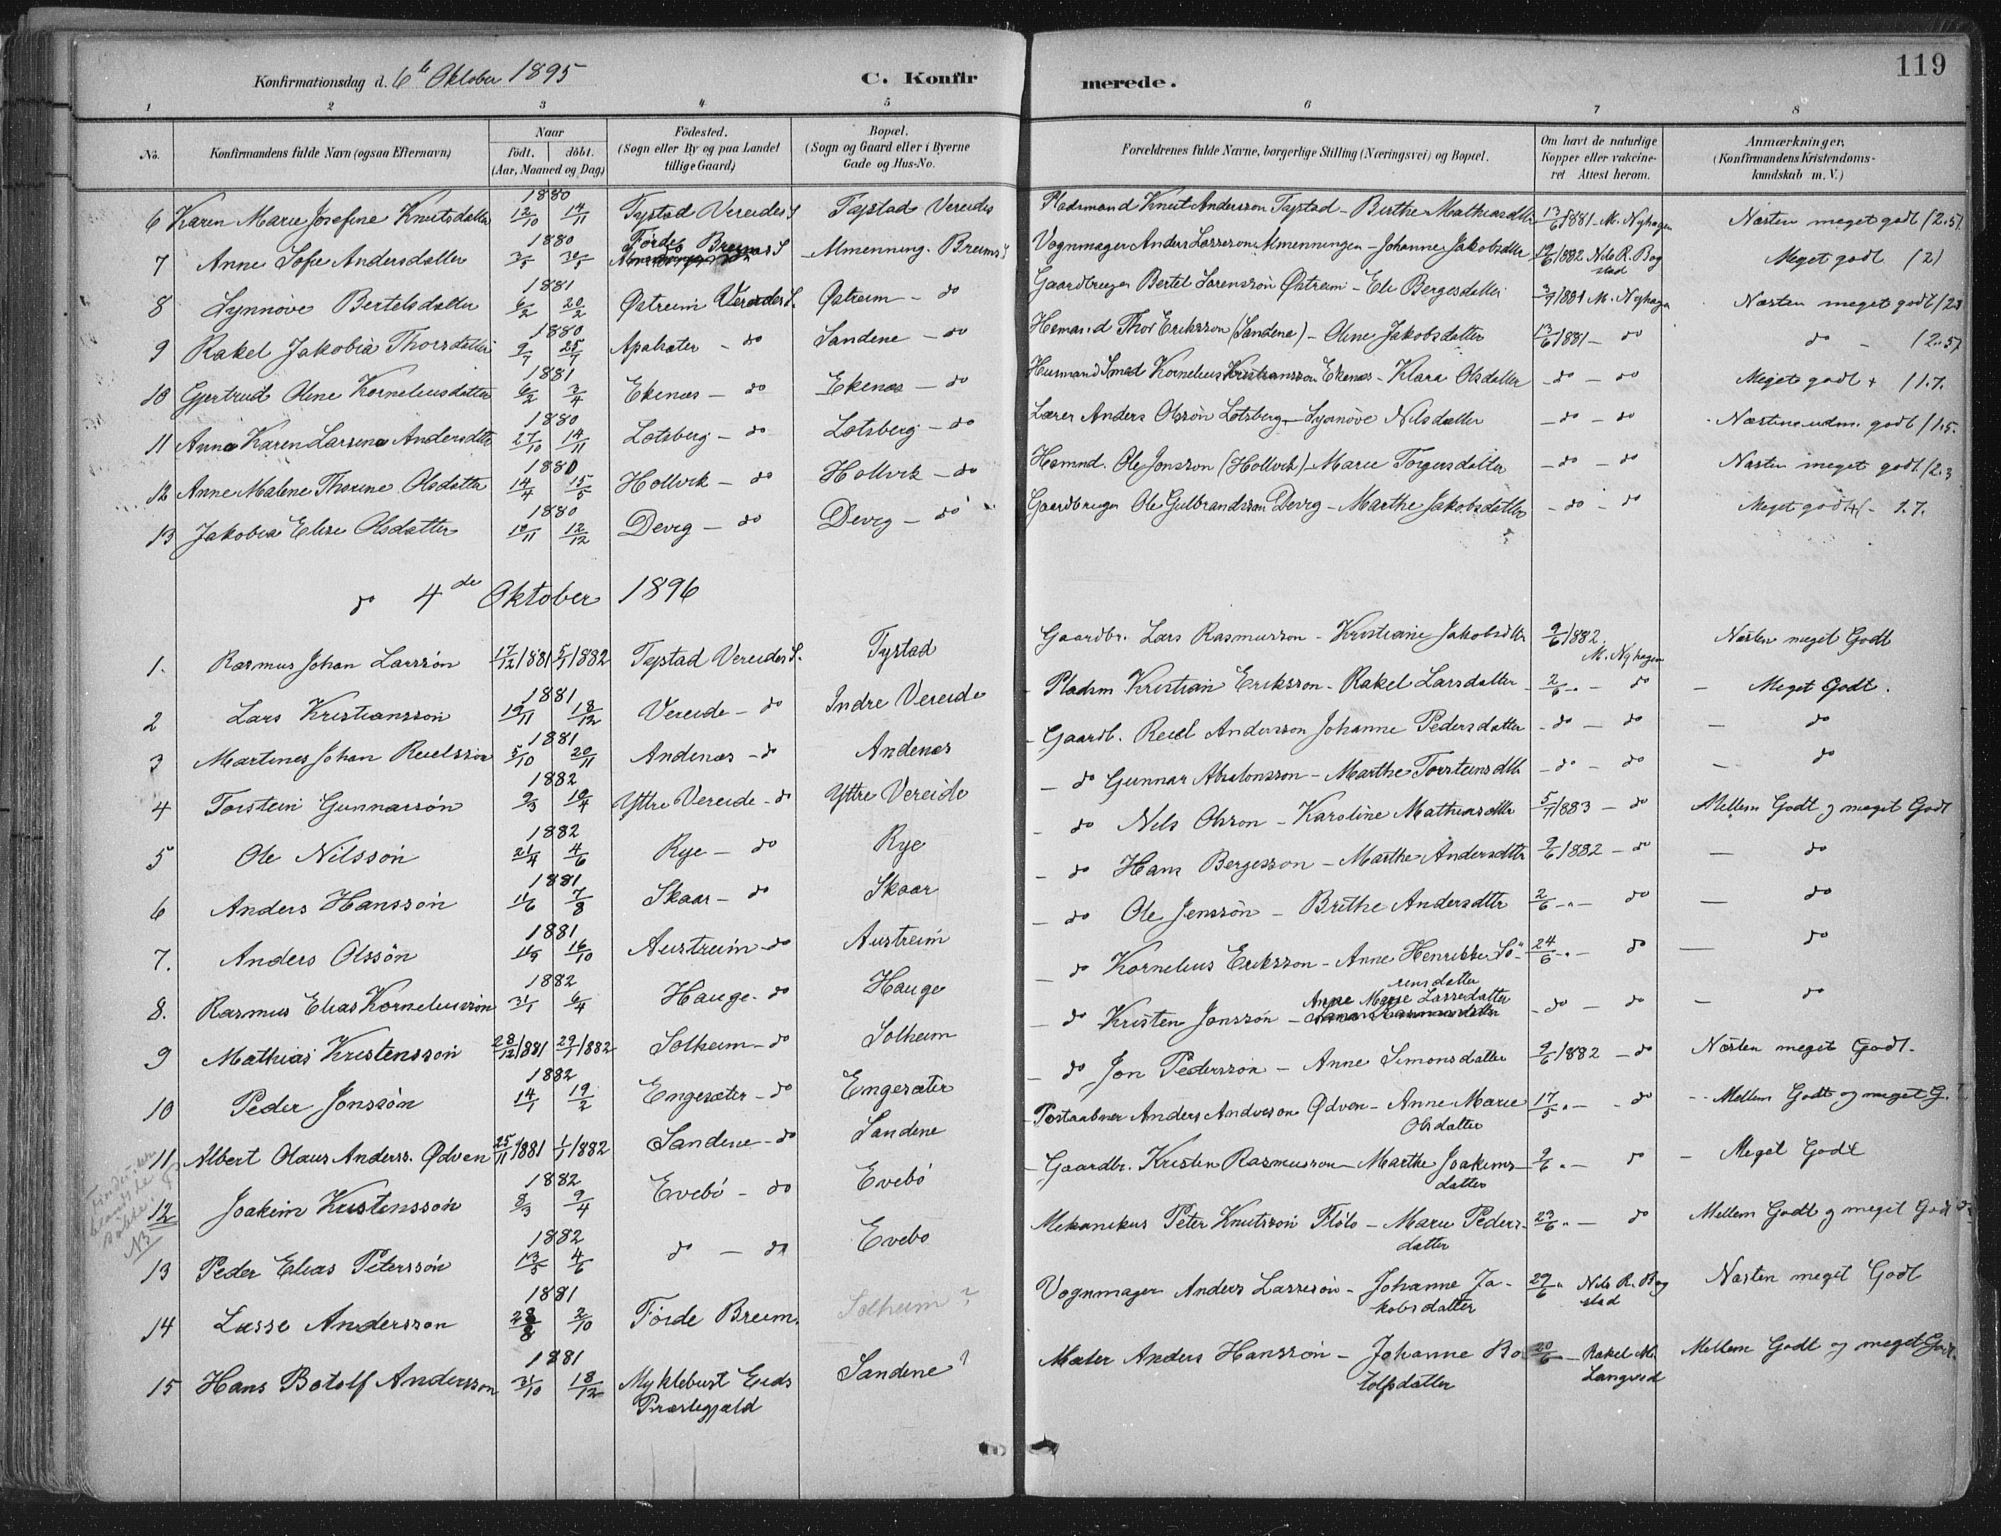 119
Konfirmationsdag d. 6te Oktober 1895 C. Konfir merede.
1 2 3 4 5 6 7 8
No. Konfirmandens fulde Navn (ogsaa Efternavn) Naar Födt. döbt. (Aar, Maaned og Dag) Födested. (Sogn eller By og paa Landet tillige Gaard) Bopæl. (Sogn og Gaard eller i Byerne Gade og Hus-No. Forældrenes fulde Navne, borgerlige Stilling (Næringsvei) og Bopæl. Om havt de naturlige Kopper eller vakcineret Attest herom. Anmærkninger. (Konfirmandens Kristendomskundskab m. V.)
6 Karen Marie Josefine Knutsdatter 1880 12/10 14/11 Tystad Vereides S Tystad Vereides Pladsmand Knut Andersson Tystad - Birthe Mathiasdtter 13/6 1881 - M. Nyhagen Næsten meget godt (2.5)
7 Anne Sofie Andersdatter 1880 3/5 30/5 Förde Breims S Almenning. Breims S Vognmager Anders Lasseson Almenningen - Johanne Jakobsdatter 19/6 1882 Nils R. Bogstad Meget godt (2)
8 Synnöve Bertelsdatter 1881 6/2 20/2 Østreim Vereides S. Østreim - do Gaardbruger Bertel Sörensson Østreim - Eli Bergesdatter M. Nyhagen Næsten meget godt
9 Rakel Jakobia Thorsdatter 1880 9/7 25/7 Apalsæter - do Sandene - do Hsmand Thor Eriksson (Sandene) - Oline Jakobsdatter 13/6 1881 - do do - (2.5)
10 Gjertrud Oline Korneliusdatter 1881 6/2 3/4 Ekenæs - do Ekenæs - do Husmand Smed Kornelius Kristiansson Ekenæs - Klara Olsdatter - do - do Meget godt + (1.7.
11 Anna Karen Larsine Andersdtter 1880 27/10 14/11 Lotsberg - do Lotsberg - do Lærer Anders Olssön Lotsberg - Synnöve Nilsdatter - do - do Næsten udm. godt (1.5.
12 Anne Malene Thorine Olsdatter 1880 14/4 15/5 Hollvik - do Hollvik - do Hsmnd. Ole Jonsson (Hollvik) - Marie Torgersdatter - do - do Næsten meget godt (2.3
13 Jakobia Elise Olsdatter 1880 10/11 12/12 Devig - do Devig - do Gaardbruger Ole Gulbrandsson Devig - Marthe Jakobsdatter - do - do Meget godt + - 1.7.
do 4de Oktober 1896
1. Rasmus Johan Larssön 17/12 1881 5/1 1882 Tystad Vereides S. Tystad Gaardbr. Lars Rasmusson - Kristiane Jakobsdtr 9/6 1882 M. Nyhagen Næsten meget Godt
2 Lars Kristiansson 1881 19/11 18/12 Vereide - do Indre Vereide - Pladsm Kristian Eriksson - Rakel Larsdatter 2/6 " - do - Meget Godt.
3 Martines Johan Reielssön 1881 5/10 20/11 Andenæs - do Andenæs - Gaardb. Reiel Andersson Johanne Pedersdatter - do - do - do
4 Torstein Gunnarsön 1882 9/3 10/4 Yttre Vereide - do Yttre Vereide - do Gunnar Absalonsson - Marthe Torsteinsdtr - do - do do
5 Ole Nilssön 1882 21/4 4/6 Rye - do Rye - do Nils Olsson - Karoline Mathiasdtter 5/7 1883 - do Mellem Godt og meget Godt
6 Anders Hanssön 1881 11/6 7/8 Skaar - do Skaar - do Hans Bergesson - Marthe Andersdtter 9/6 1882 - do - do
7. Anders Olssön 1881 11/9 16/10 Austreim - do Austreim - do Ole Jenssön - Brithe Andersdtter 2/6 " - do - do
8. Rasmus Elias Korneliussön 1882 31/1 6/4 Hauge - do Hauge - do Kornelius Eriksson - Anne Henrikke Sö- rensdatter 24/6 " - do - do
9 Mathias Kristenssön 28/12 1881 29/1 1882 Solheim - do Solheim - do Kristen Jonssön - Anne Marie Lassedatter - do - do - do
10 Peder Jonssön 1882 14/1 19/2 Engesæter - do Engesæter - do Jon Pederssön - Anne Simonsdatter 9/6 1882 - do Næsten meget Godt.
11 Albert Olaus Anderss. Ødven 25/11 1881 1/1 1882 Sandene - do Sandene Postaabner Anders Andersson Ødven - Anne Marie Olsdatter 17/5 " - do - Mellem Godt og meget G.
12 Joakim Kristenssön 1882 8/3 9/4 Evebö - do Evebö - Gaardbr. Kristen Rasmusson - Marthe Joakimsdatter 9/6 " - do - Meget Godt
13 Peder Elias Peterssön 1882 13/5 4/6 do - do Evebö Mekanikus Peter Knutssön Flölo - Marie Pedersdatter 23/6 " - do Mellem Godt og meget Godt
14 Lasse Anderssön 1881 28/8 2/10 Förde Breim. Solheim? Vognmager Anders Lassesön - Johanne Jakobsdatter 29/6 " Nils R. Bogstad Næsten meget Godt
15 Hans Botolf Anderssön 1881 31/10 18/12 Myklebust Eids Præstegjæld Sandene? Maler Anders Hanssön - Johanne Botolfsdatter 20/6 - Rakel M. Langved Mellem Godt og meget Godt.